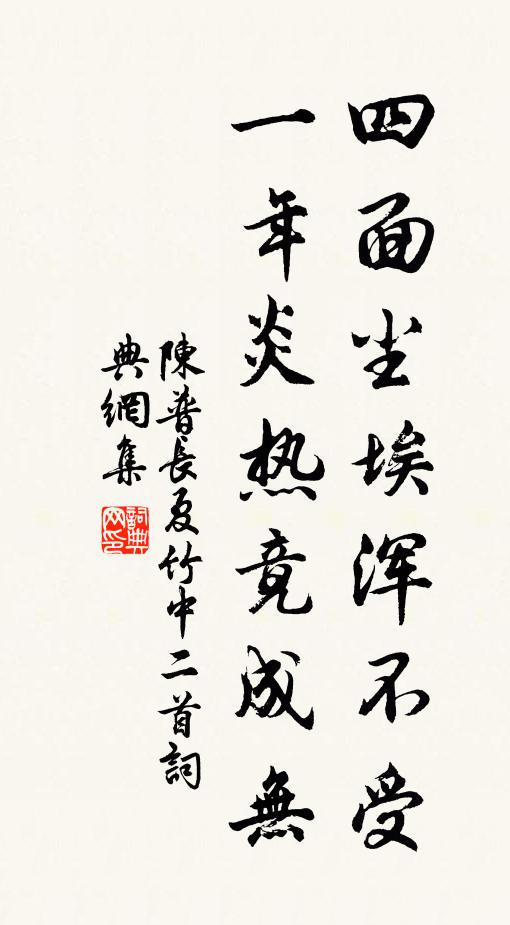 四面尘埃浑不受
一年炎热竟成無
陳普長夏竹中二首詞
典網集
詞典
网印